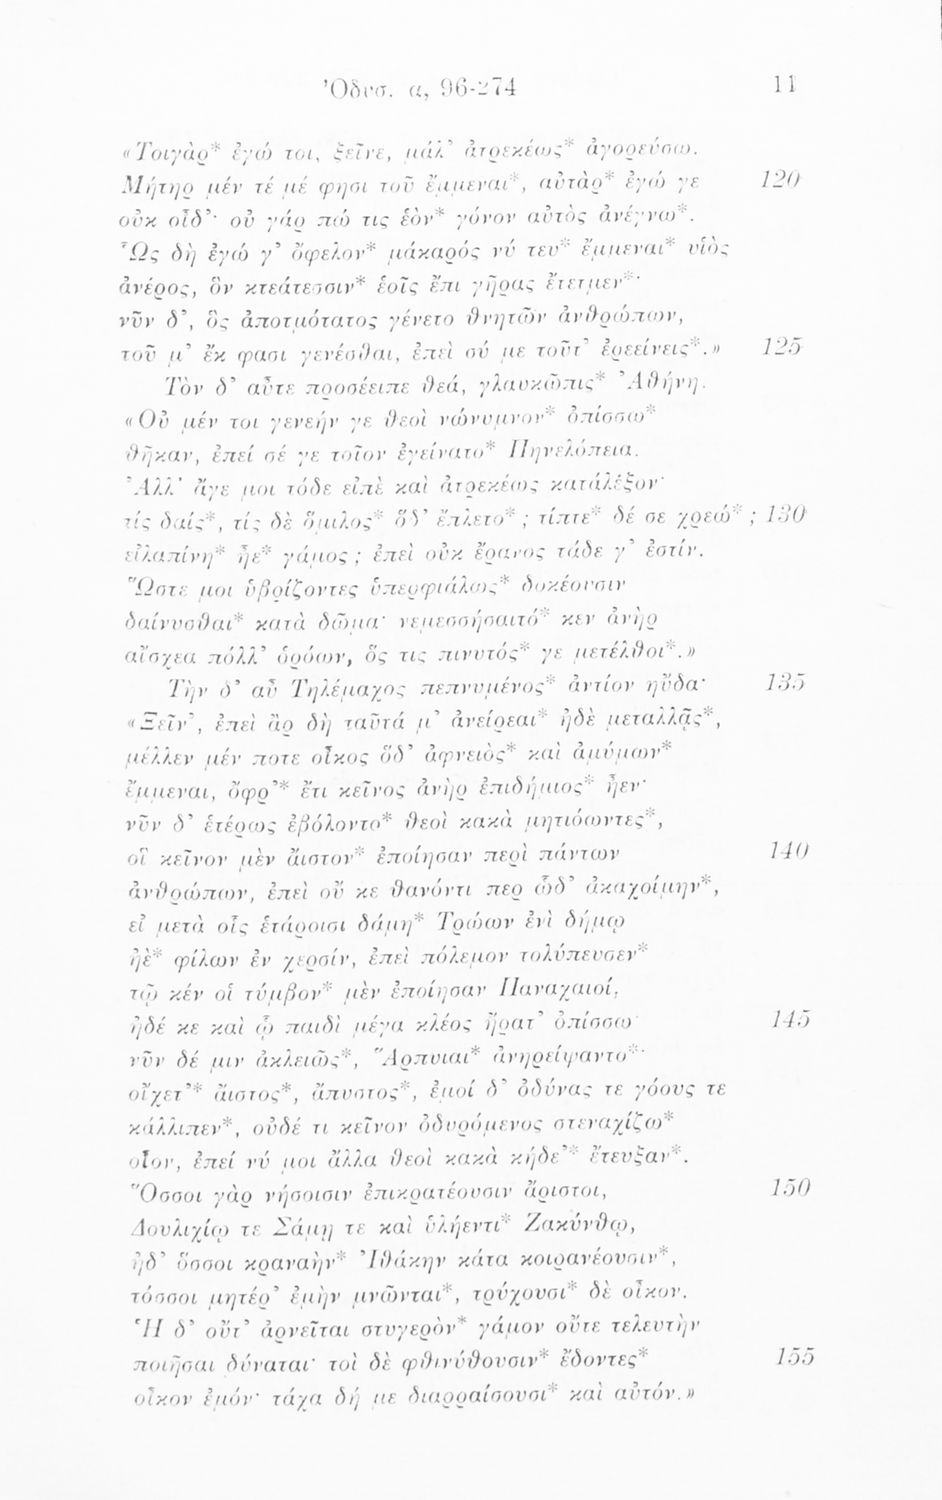 Ὀδυσ. α, 96-274 11
«Τοιγὰρ* ἐγώ τοι, ξεῖνε, μάλ’ ἀτρεκέως* ἀγορεύσω.
Μήτηρ μέν τέ μέ φησι τοῦ ἔμμεναι*, αὐτὰρ* ἐγώ γε 120
οὐκ οἶδ’· οὐ γάρ πώ τις ἑὸν* γόνον αὐτὸς ἀνέγνω*.
Ὣς δὴ ἐγώ γ’ ὄφελον* μάκαρός νύ τευ* ἔμμεναι* υἱὸς
ἀνέρος, ὃν κτεάτεσσιν* ἑοῖς ἔπι γῆρας ἔτετμεν*·
νῦν δ’, ὃς ἀποτμότατος γένετο θνητῶν ἀνθρώπων,
τοῦ μ’ ἔκ φασι γενέσθαι, ἐπεὶ σύ με τοῦτ’ ἐρεείνεις*.» 125
Τὸν δ’ αὖτε προσέειπε θεά, γλαυκῶπις* Ἀθήνη.
«Οὐ μέν τοι γενεήν γε θεοὶ νώνυμνον* ὀπίσσω*
θῆκαν, ἐπεί σέ γε τοῖον ἐγείνατο* Πηνελόπεια.
Ἀλλ’ ἄγε μοι τόδε εἰπὲ καὶ ἀτρεκέως κατάλεξον·
τίς δαίς*, τίς δὲ ὅμιλος* ὅδ’ ἔπλετο* ; τίπτε* δέ σε χρεώ* ; 130
εἰλαπίνη* ἦε* γάμος ; ἐπεὶ οὐκ ἔρανος τάδε γ’ ἐστίν.
Ὥστε μοι ὑβρίζοντες ὑπερφιάλως* δοκέουσιν
δαίνυσθαι* κατὰ δῶμα· νεμεσσήσαιτό* κεν ἀνὴρ
αἴσχεα πόλλ’ ὁρόων, ὅς τις πινυτός* γε μετέλθοι*.»
Τὴν δ’ αὖ Τηλέμαχος πεπνυμένος* ἀντίον ηὔδα· 135
«Ξεῖν’, ἐπεὶ ἂρ δὴ ταῦτά μ’ ἀνείρεαι* ἠδὲ μεταλλᾷς*,
μέλλεν μέν ποτε οἶκος ὅδ’ ἀφνειὸς* καὶ ἀμύμων*
ἔμμεναι, ὄφρ’* ἔτι κεῖνος ἀνὴρ ἐπιδήμιος* ἦεν·
νῦν δ’ ἑτέρως ἐβόλοντο* θεοὶ κακὰ μητιόωντες*,
οἳ κεῖνον μὲν ἄιστον* ἐποίησαν περὶ πάντων 140
ἀνθρώπων, ἐπεὶ οὔ κε θανόντι περ ὧδ’ ἀκαχοίμην*,
εἰ μετὰ οἷς ἑτάροισι δάμη* Τρώων ἐνὶ δήμῳ
ἠὲ* φίλων ἐν χερσίν, ἐπεὶ πόλεμον τολύπευσεν*
τῷ κέν οἱ τύμβον* μὲν ἐποίησαν Παναχαιοί,
ἠδέ κε καὶ ᾧ παιδὶ μέγα κλέος ἤρατ’ ὀπίσσω· 145
νῦν δέ μιν ἀκλειῶς*, Ἅρπυιαι* ἀνηρείψαντο*·
οἴχετ’* ἄιστος*, ἄπυστος*, ἐμοί δ’ ὀδύνας τε γόους τε
κάλλιπεν*, οὐδέ τι κεῖνον ὀδυρόμενος στεναχίζω*
οἶον, ἐπεί νύ μοι ἄλλα θεοὶ κακὰ κήδε’* ἔτευξαν*.
Ὅσσοι γὰρ νήσοισιν ἐπικρατέουσιν ἄριστοι, 150
Δουλιχίῳ τε Σάμῃ τε καὶ ὑλήεντι* Ζακύνθῳ,
ἠδ’ ὅσσοι κραναὴν* Ἰθάκην κάτα κοιρανέουσιν*,
τόσσοι μητέρ’ ἐμὴν μνῶνται*, τρύχουσι* δὲ οἶκον.
Ἡ δ’ οὔτ’ ἀρνεῖται στυγερὸν* γάμον οὔτε τελευτὴν
ποιῆσαι δύναται· τοὶ δὲ φθινύθουσιν* ἔδοντες* 155
οἶκον ἐμόν· τάχα δή με διαρραίσουσι* καὶ αὐτόν.»